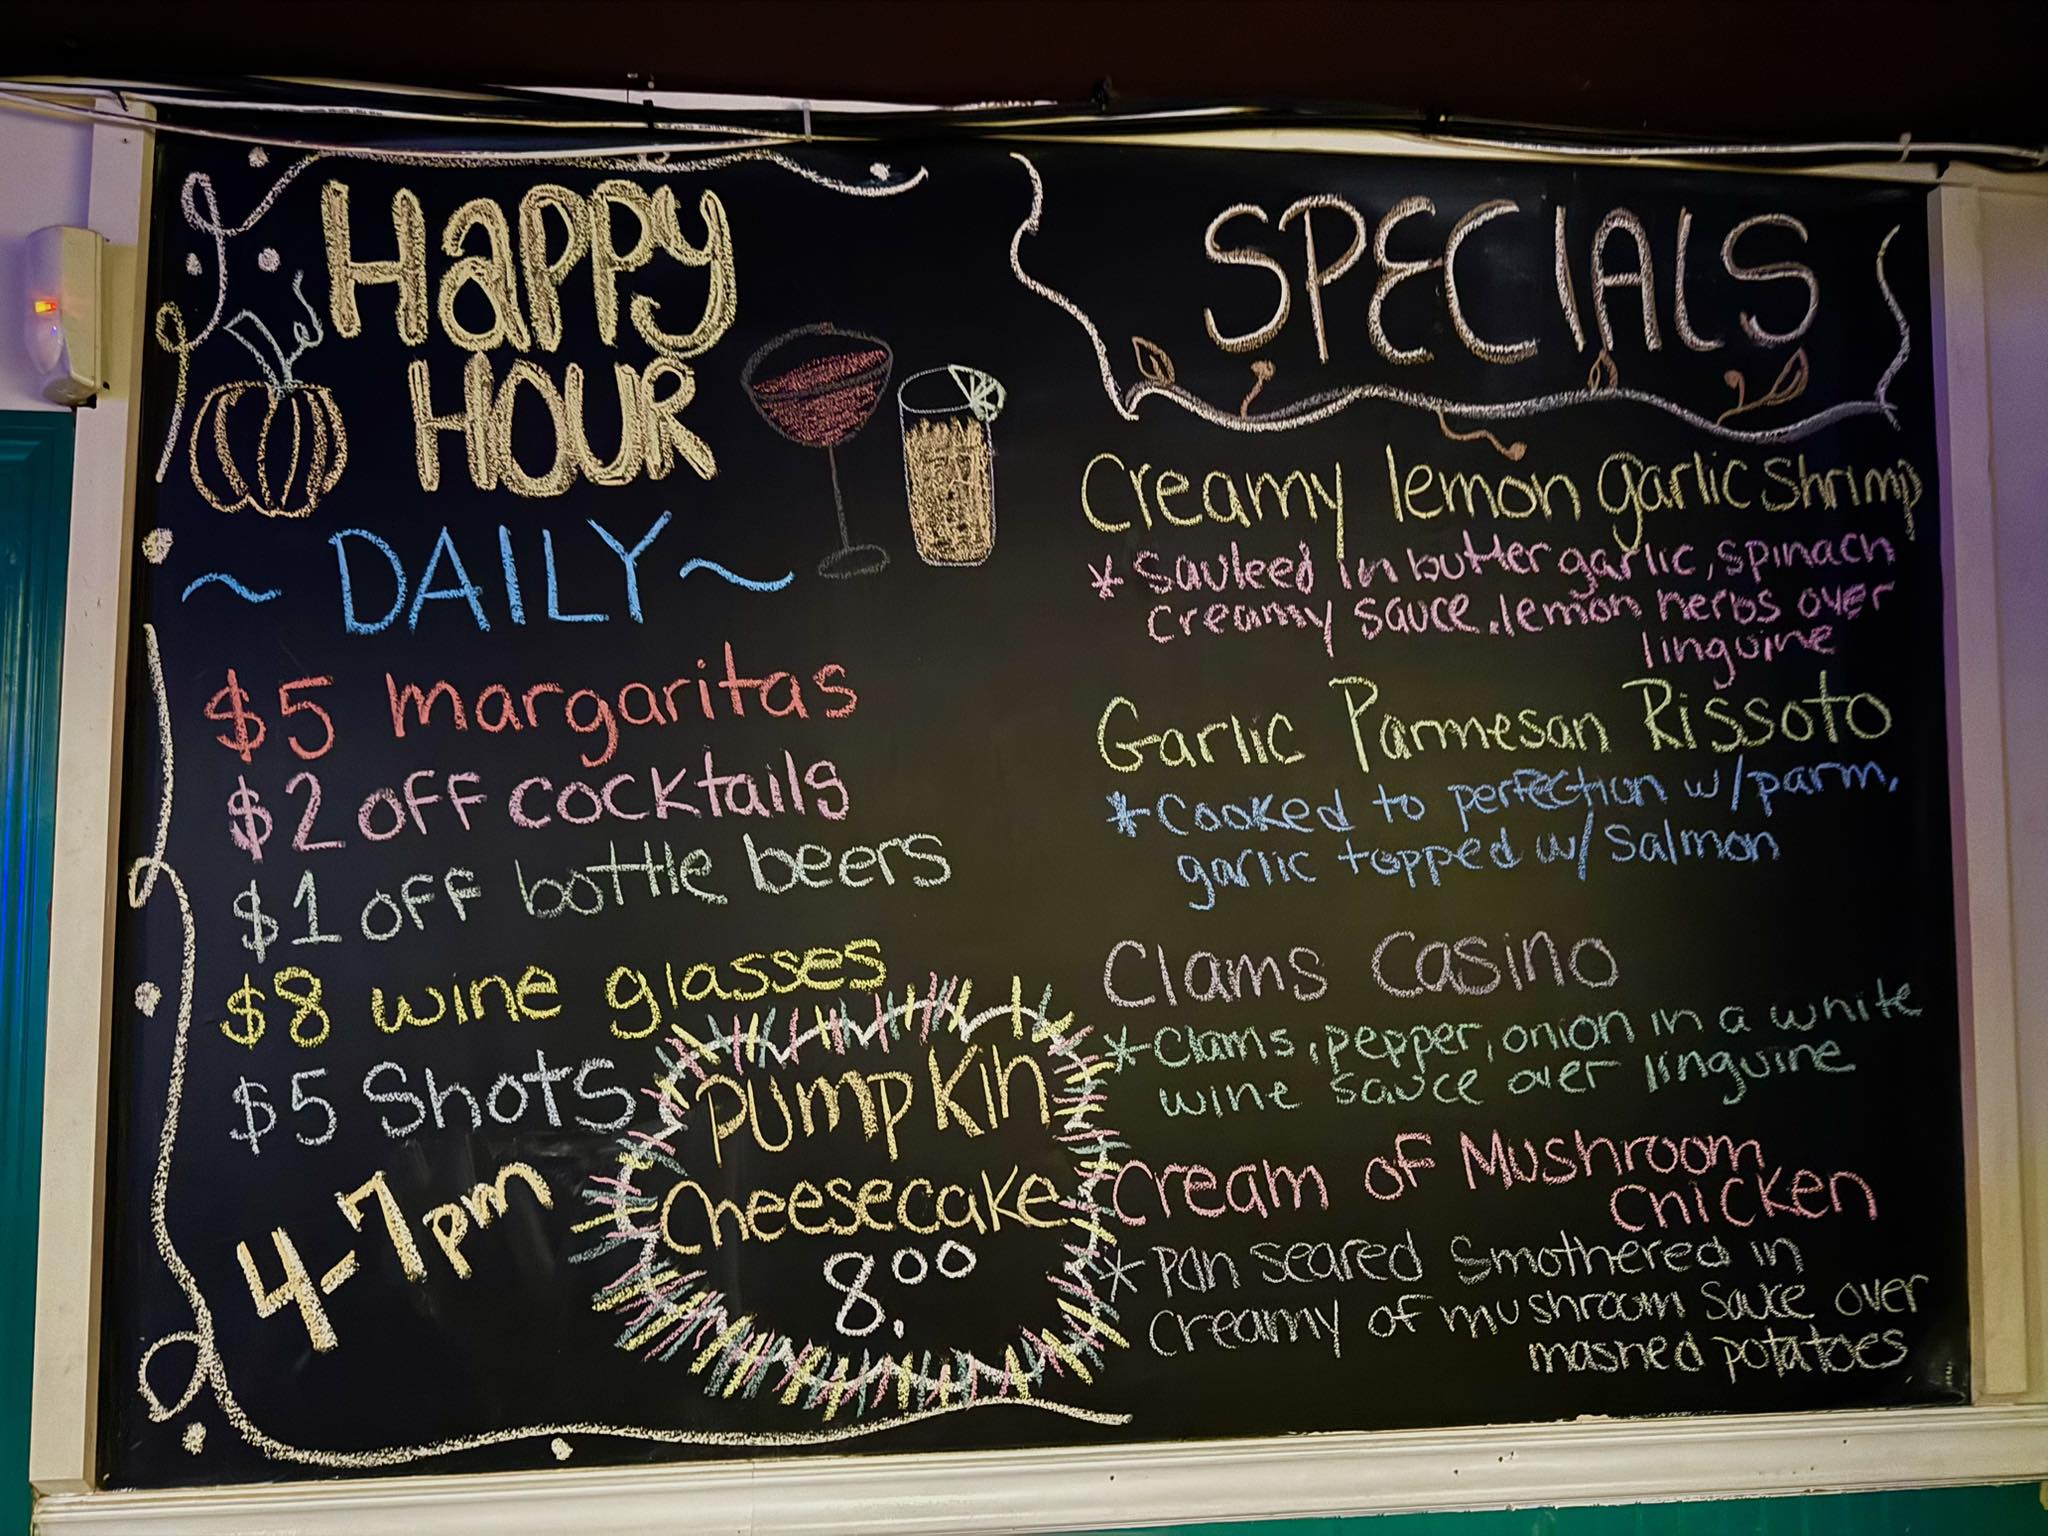 Happy
HOUR
~ DAILY ~
$5 margaritas
$2 off cocktails
$1 off bottle beers
$8 wine glasses
$5 Shots
4-7pm
Pumpkin
Cheesecake
8.00
SPECIALS
Creamy lemon garlic shrimp
* Sauteed in butter garlic, spinach
creamy sauce, lemon herbs over
linguine
Garlic Parmesan Rissoto
* Cooked to perfection w/parm,
garlic topped w/ Salmon
Clams Casino
* Clams, pepper, onion in a white
wine sauce over linguine
Cream of Mushroom
Chicken
* Pan Seared Smothered in
Creamy of mushroom Sauce over
mashed potatoes